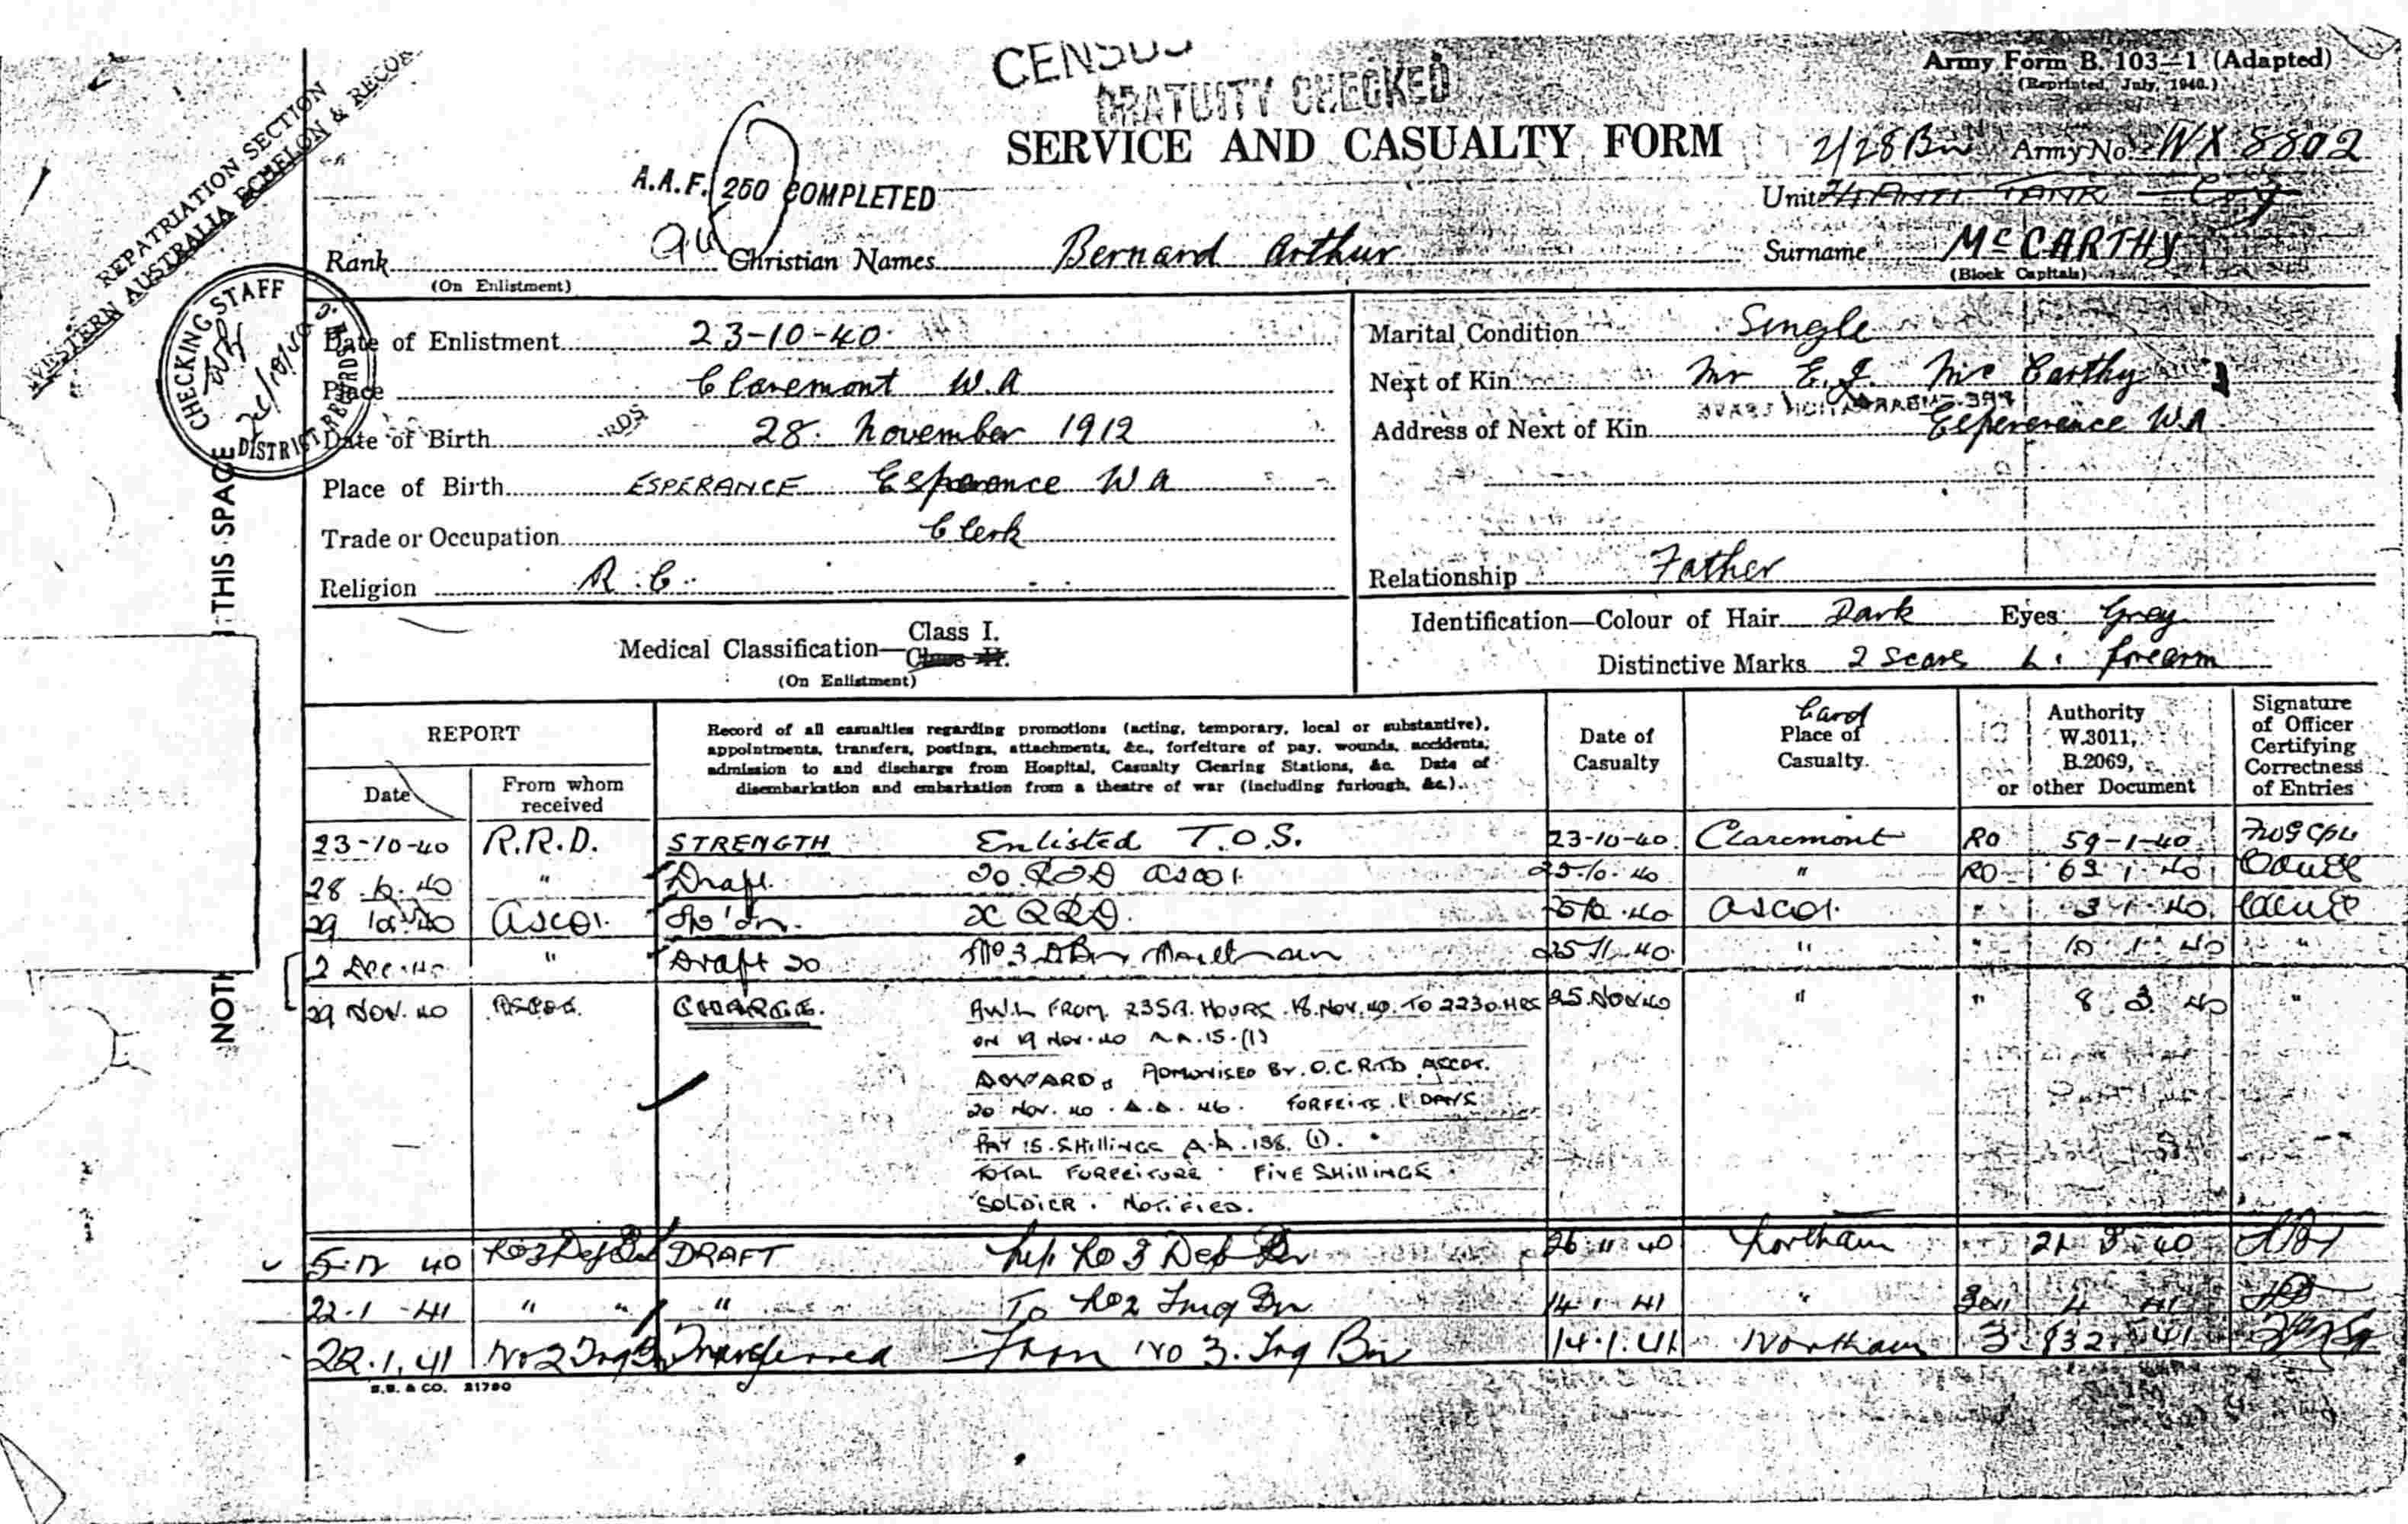 CENSUS
GRATUITY CHECKED
Army Form B. 103—1 (Adapted)
(Reprinted, July, 1940.)
REPATRIATION SECTION
WESTERN AUSTRALIA ECHELON & RECOR
SERVICE AND CASUALTY FORM
2/28 Bn Army No. WX 8802
A.A.F. 250 COMPLETED
Unit ANTI TANK Coy
Rank
(On Enlistment)
Christian Names Bernard Arthur
Surname McCARTHY
(Block Capitals)
CHECKING STAFF
DISTRICT RECORDS
Date of Enlistment 23-10-40
Place Claremont W.A
RDS
Date of Birth 28. November 1912
Place of Birth ESPERANCE Esperence W A
Trade or Occupation Clerk
Religion R.C.
Marital Condition Single
Next of Kin Mr E.J. McCarthy
Address of Next of Kin Esperence W.A.
Relationship Father
THIS SPACE
NOTH
Medical Classification— Class I.
Class II.
(On Enlistment)
Identification—Colour of Hair Dark Eyes Grey
Distinctive Marks 2 Scars L. forearm
REPORT
Date
From whom received
Record of all casualties regarding promotions (acting, temporary, local or substantive),
appointments, transfers, postings, attachments, &c., forfeiture of pay, wounds, accidents,
admission to and discharge from Hospital, Casualty Clearing Stations, &c. Date of
disembarkation and embarkation from a theatre of war (including furlough, &c.).
Date of Casualty
Card
Place of Casualty.
Authority W.3011, B.2069, or other Document
Signature of Officer Certifying Correctness of Entries
23-10-40 R.R.D. STRENGTH Enlisted T.O.S. 23-10-40 Claremont RO 59-1-40
28 10 40 " Draft Ascot 25-10-40 " RO 63 1 40
29 10 40 Ascot 25 10 40 Ascot " 3 1 40
2 Dec 40 " Draft to No 3 25 11 40 " " 10 1 40 "
29 NOV. 40 ASCOT. CHARGE. A.W.L FROM 2359 HOURS 18 NOV. 40. TO 2230 HRS 25 NOV 40 " " 8 3 40 "
ON 19 NOV. 40 A.A. 15. (1)
AWARD. ADMONISED BY. O.C. R.T.D ASCOT.
20 NOV. 40. A.A. 46. FORFEITS 1 DAYS
PAY 5. SHILLINGS A.A. 138. (1).
TOTAL FORFEITURE FIVE SHILLINGS
SOLDIER. NOTIFIED.
5-12 40 No 3 Dep Bn DRAFT No 3 Dep Bn 26 11 40 Northam 21 3 40
22-1-41 " " " To No 2 Trng Bn 14 1 41 " 4 41
22.1.41 No 2 Trg Bn Transferred From No 3. Trg Bn 14.1.41 Northam 3 832 41
S.B. & CO. 21790